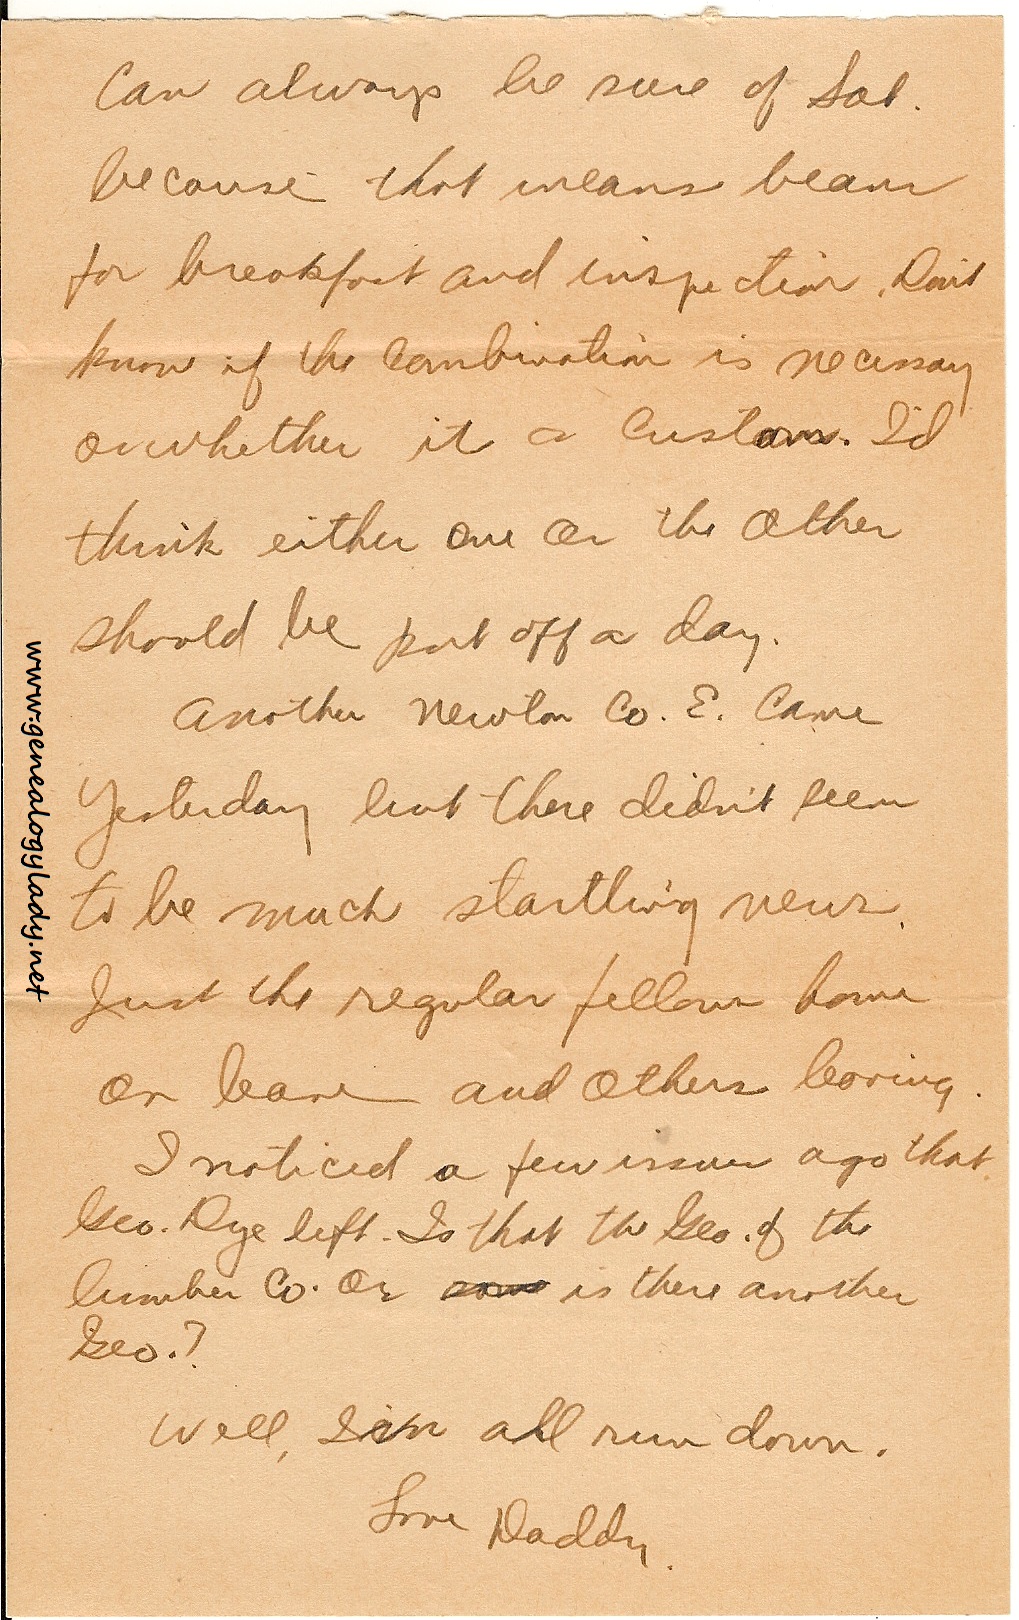 Can always be sure of Sat.
because that means beans
for breakfast and inspection. Don't
know if the combination is necessary
or whether it a custom. I'd
think either one or the other
should be put off a day.
Another Newton Co. E. Came
Yesterday but there didn't seem
to be much startling news.
Just the regular fellows home
on leave and others leaving.
I noticed a few issues ago that
Geo. Dye left. Is that the Geo. of the
lumber Co. Or is there another
Geo.?
Well, I'm all run down.
Love Daddy.
www.genealogylady.net